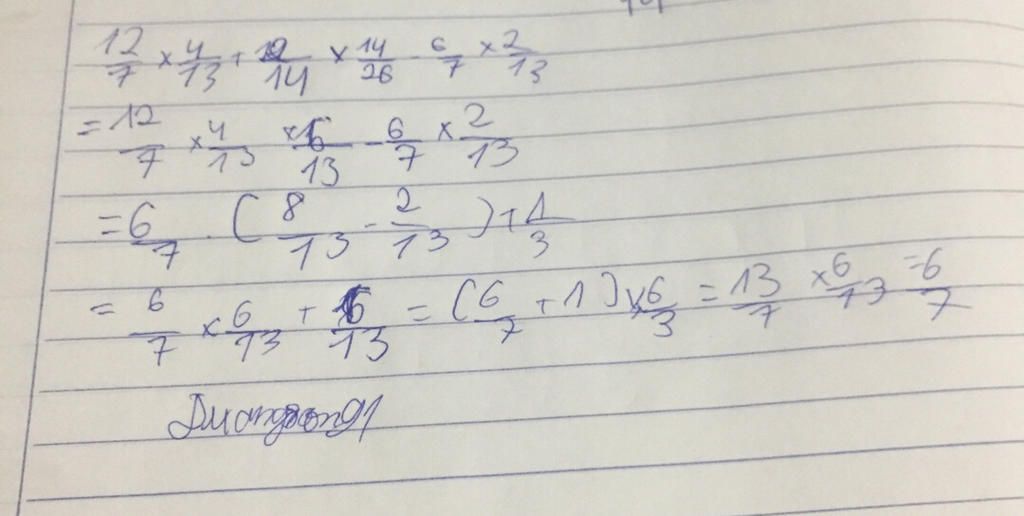 12/7 × 4/13 + 12/14 × 14/26 - 6/7 × 2/13
= 12/7 × 4/13 × 6/13 - 6/7 × 2/13
= 6/7 . (8/13 - 2/13) + 1/3
= 6/7 × 6/13 + 6/13 = (6/7 + 1) × 6/3 = 13/7 × 6/13 = 6/7